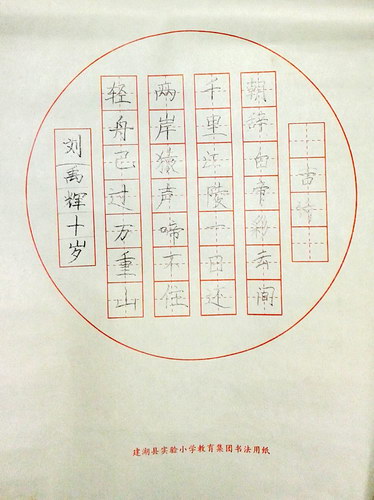 古诗
朝辞白帝彩云间
千里江陵一日还
两岸猿声啼不住
轻舟已过万重山
刘禹辉十岁
建湖县实验小学教育集团书法用纸